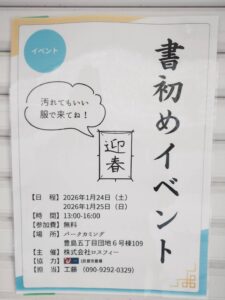 イベント
書初めイベント
汚れてもいい
服で来てね!
迎春
【日　程】2026年1月24日(土)
2026年1月25日(日)
【時　間】13:00-16:00
【参加費】無料
【場　所】パークカミング
豊島五丁目団地6号棟109
【主　催】株式会社ロスフィー
【協　力】
【担　当】工藤 (090-9292-0329)